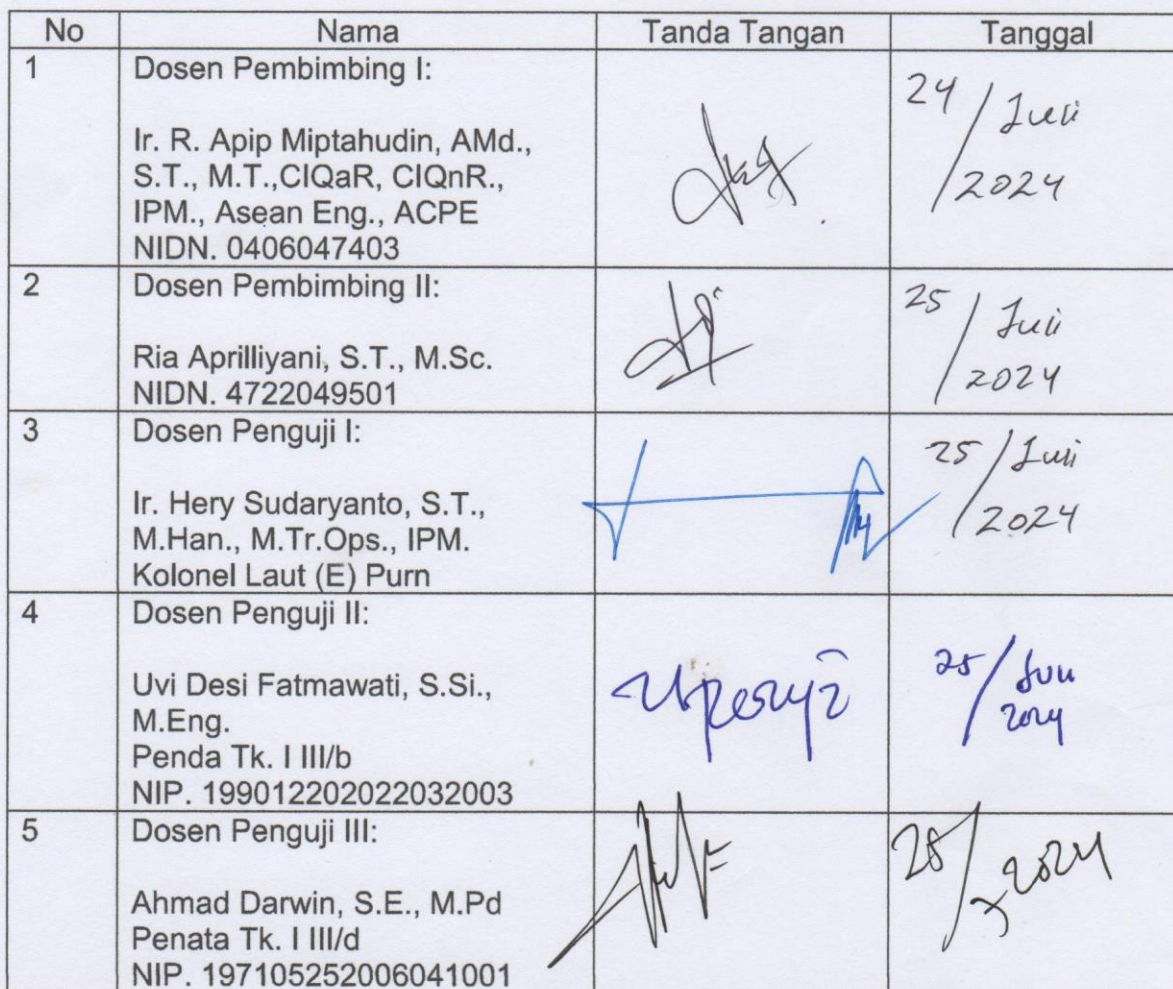 No Nama Tanda Tangan Tanggal
1 Dosen Pembimbing I:
Ir. R. Apip Miptahudin, AMd.,
S.T., M.T.,CIQaR, CIQnR.,
IPM., Asean Eng., ACPE
NIDN. 0406047403
24 / Juli
2024
2 Dosen Pembimbing II:
Ria Aprilliyani, S.T., M.Sc.
NIDN. 4722049501
25 / Juli
2024
3 Dosen Penguji I:
Ir. Hery Sudaryanto, S.T.,
M.Han., M.Tr.Ops., IPM.
Kolonel Laut (E) Purn
25 / Juli
2024
4 Dosen Penguji II:
Uvi Desi Fatmawati, S.Si.,
M.Eng.
Penda Tk. I III/b
NIP. 199012202022032003
25 /
2024
5 Dosen Penguji III:
Ahmad Darwin, S.E., M.Pd
Penata Tk. I III/d
NIP. 197105252006041001
2024